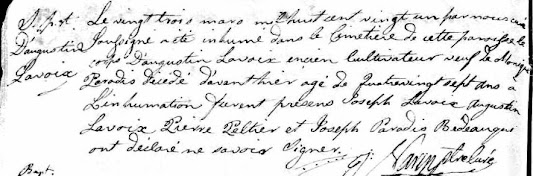 Sp.t Le vingt trois mars mil huit cent vingt un par nous curé
D'augustin Soussigné a été inhumé dans le Cimetière de cette paroisse le
Lavoix corps D'augustin Lavoix encien Cultivateur veuf de Monique
Paradis décédé d'avanthier agé de Quatrevingt sept ans a
L'inhumation furent présens Joseph Lavoix Augustin
Lavoix Pierre Peltier et Joseph Paradis Bedeau qui
ont déclaré ne savoir Signer.
Bapt.